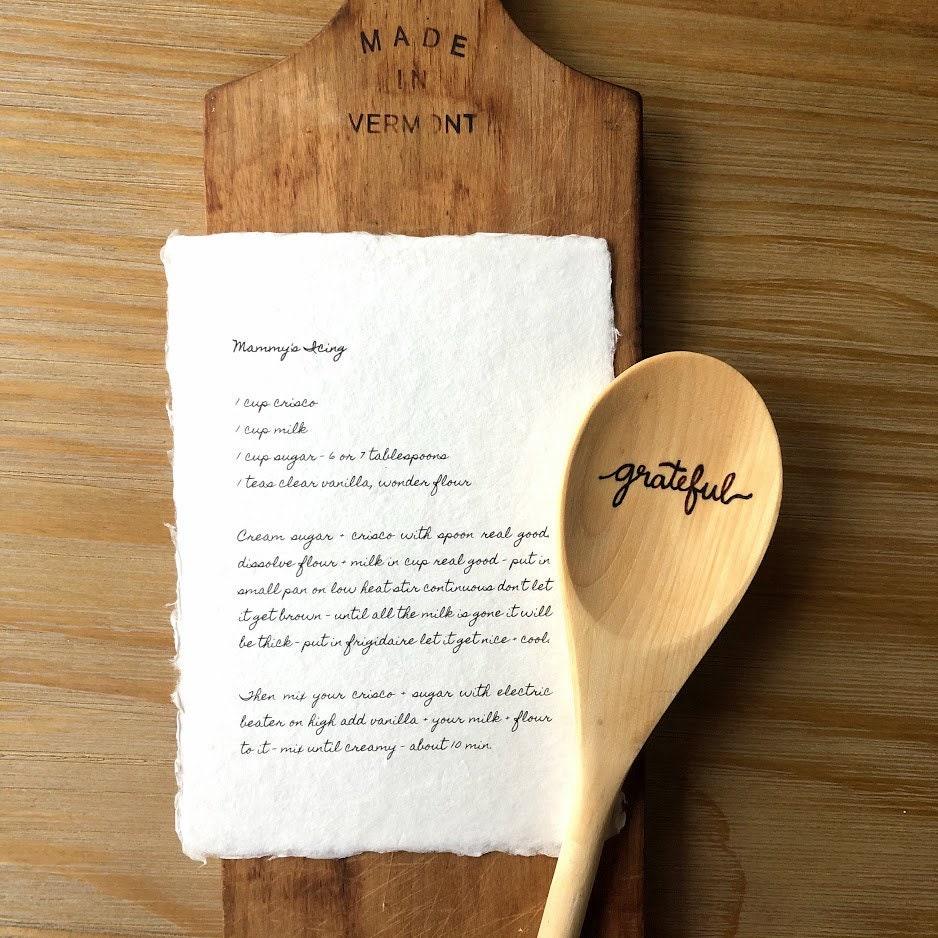 MADE
IN
VERMONT
Mammy's Icing
1 cup crisco
1 cup milk
1 cup sugar - 6 or 7 tablespoons
1 teas clear vanilla, wonder flour
Cream sugar + crisco with spoon real good.
dissolve flour + milk in cup real good - put in
small pan on low heat stir continuous don't let
it get brown - until all the milk is gone it will
be thick - put in frigidaire let it get nice + cool.
Then mix your crisco + sugar with electric
beater on high add vanilla + your milk + flour
to it - mix until creamy - about 10 min.
grateful